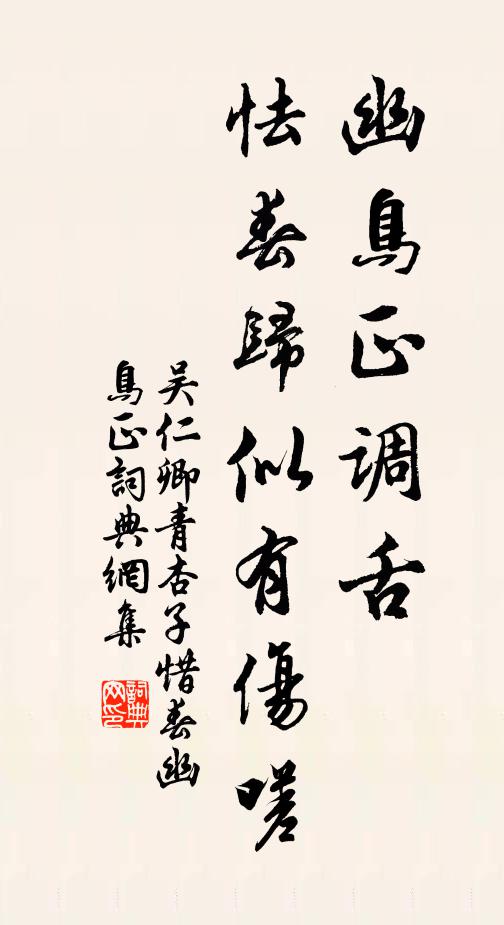 幽鳥正調舌
怯春歸似有傷嗟
吴仁卿青杏子惜春幽
鳥正詞典網集
詞典
网印